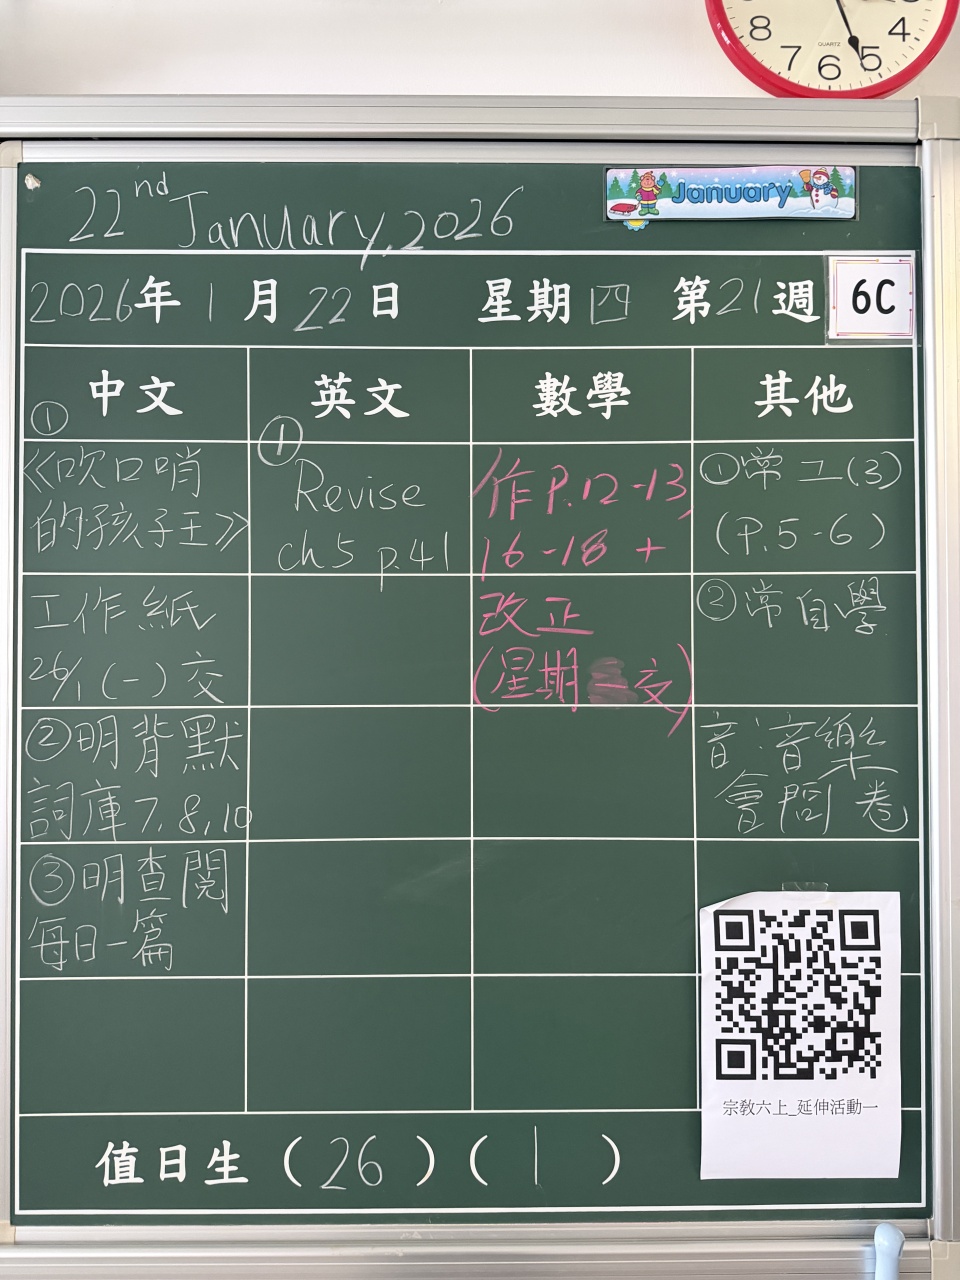 8
4
QUARTZ
7
6
5
22nd January, 2026
January
2026年1月22日 星期四 第21週
6C
中文
英文
數學
其他
①
《吹口哨
的孩子王》
工作紙
26/1 (一) 交
②明背默
詞庫7, 8, 10
③明查閱
每日一篇
①
Revise
ch5 p.41
作P.12-13,
16-18 +
改正
(星期一交)
①常工(3)
(P.5-6)
②常自學
音:音樂
會問卷
宗教六上_延伸活動一
值日生 (26) (1)